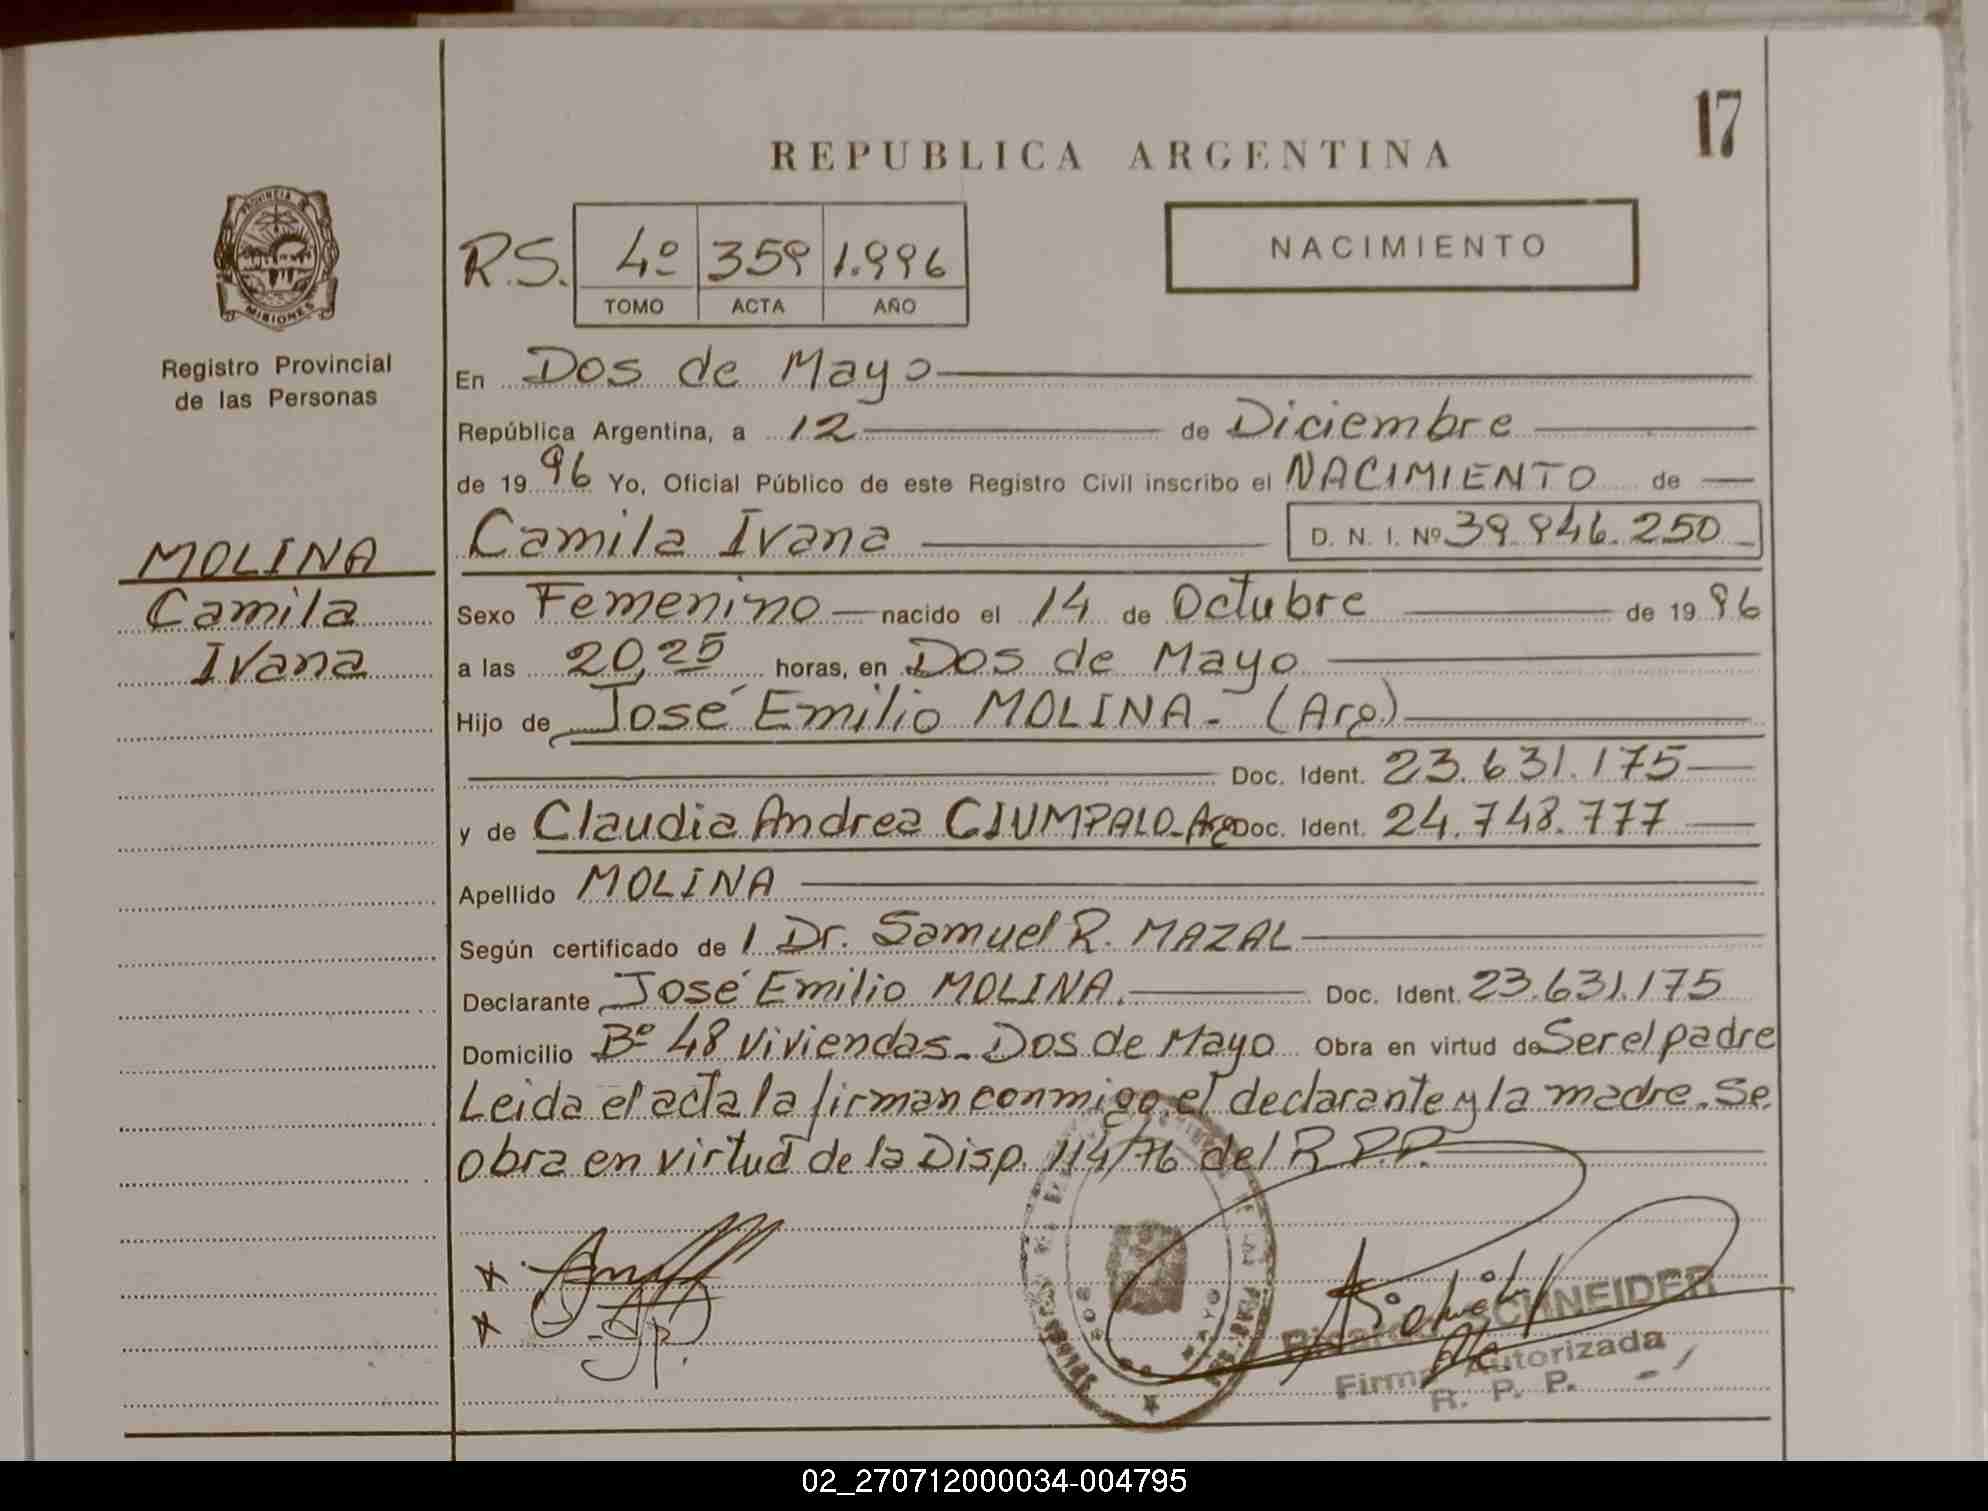 17
REPUBLICA ARGENTINA
PROVINCIA DE
MISIONES
Registro Provincial
de las Personas
R.S. 4º 359 1.996
TOMO ACTA AÑO
NACIMIENTO
En Dos de Mayo
República Argentina, a 12 de Diciembre
de 1996 Yo, Oficial Público de este Registro Civil inscribo el NACIMIENTO de
MOLINA
Camila
Ivana
Camila Ivana D. N. I. Nº 39.946.250
Sexo Femenino nacido el 14 de Octubre de 1996
a las 20,25 horas, en Dos de Mayo
Hijo de José Emilio MOLINA.- (Arg)
Doc. Ident. 23.631.175
y de Claudia Andrea CIUMPALO-Arg Doc. Ident. 24.748.777
Apellido MOLINA
Según certificado de 1 Dr. Samuel R. MAZAL
Declarante José Emilio MOLINA. Doc. Ident. 23.631.175
Domicilio Bº 48 viviendas. Dos de Mayo Obra en virtud de Ser el padre
Leida el acta la firman conmigo el declarante y la madre. Se
obra en virtud de la Disp. 114/76 del R.P.P.
Ricardo SCHNEIDER
Firma Autorizada
R. P. P.
02_270712000034-004795